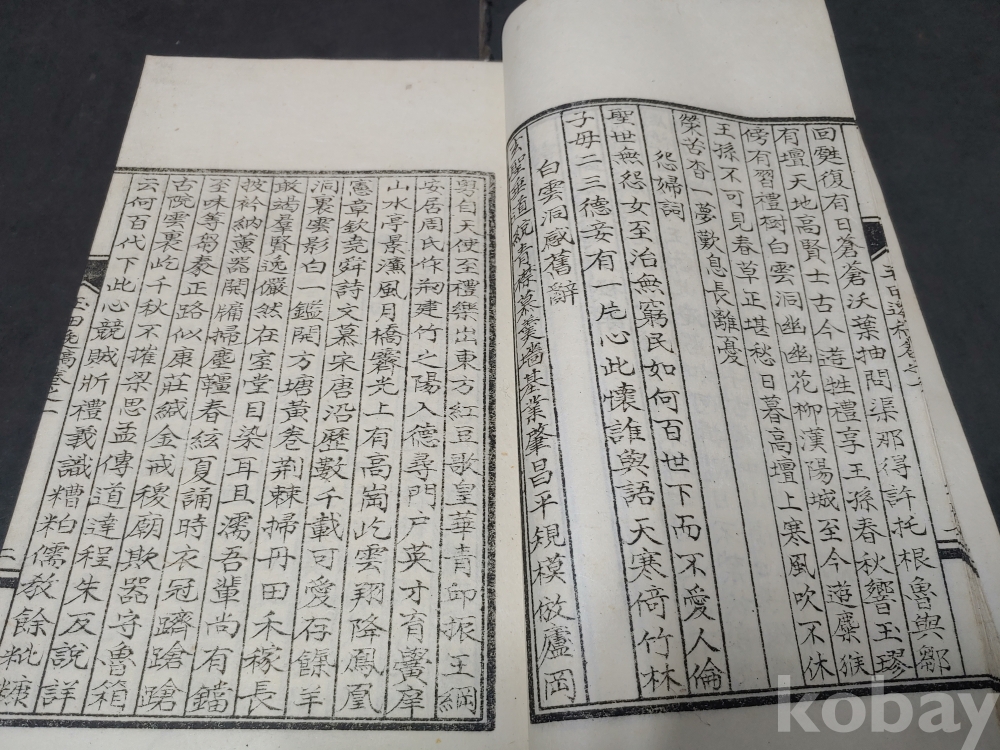 回甦復有日蒼蒼沃葉抽問渠那得許托根魯與鄒
有壇天地高賢士古今遊牲禮享王孫春秋響玉璆
傍有習禮樹白雲洞幽幽花柳漢陽城至今遊麋猴
王孫不可見春草正堪愁日暮高壇上寒風吹不休
榮苦杳一夢歎息長離憂
怨婦詞
聖世無怨女至治無窮民如何百世下而不愛人倫
子母二三德妾有一片心此懷誰與語天寒倚竹林
白雲洞感舊辭
聖 道統 慕羹墻基業肇昌平規模倣廬岡
粤自天使至禮樂出東方紅豆歌皇華青印振王綱
安居周氏作荊建竹之陽入德尋門戶英才育黌庠
山水亭景濂風月橋霽光上有高崗屹雲翔降鳳凰
憲章欽堯舜詩文慕宋唐沿歷數千載可愛存餼羊
洞裏雲影白一鑑開方塘黃卷荊棘掃丹田禾稼長
敢竭羣賢逸儼然在室堂目染耳且濡吾輩尚有鐺
披衿納薰器開牖掃塵韁春絃夏誦時衣冠躋蹌蹌
至味等芻豢正路似康莊緘金戒稷廟欹器守魯箱
古院雲裏屹千秋不摧梁思孟傳道達程朱反說詳
云何百代下此心競賊斨禮義識糟粕儒敎餘粃糠
二
kobay